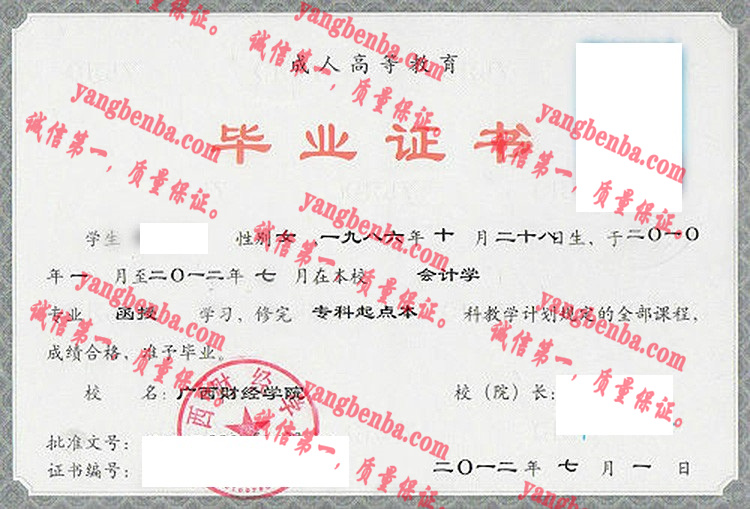 成人高等教育
毕业证书
学生 性别 女 ,一九八六年 十 月二十八日生、于二〇一〇
年 一 月至二〇一二年 七 月在本校 会计学
专业 函授 学习、修完 专科起点本 科教学计划规定的全部课程,
成绩合格、准予毕业。
校 名:广西财经学院
校(院)长:
批准文号:
证书编号:
二〇一二年 七 月 一 日
西财经学
yangbenba.com
诚信第一,质量保证。
yangbenba.com
诚信第一,质量保证。
yangbenba.com
诚信第一,质量保证。
yangbenba.com
诚信第一,质量保证。
yangbenba.com
诚信第一,质量保证。
yangbenba.com
诚信第一,质量保证。
yangbenba.com
诚信第一,质量保证。
yangbenba.com
诚信第一,质量保证。
yangbenba.com